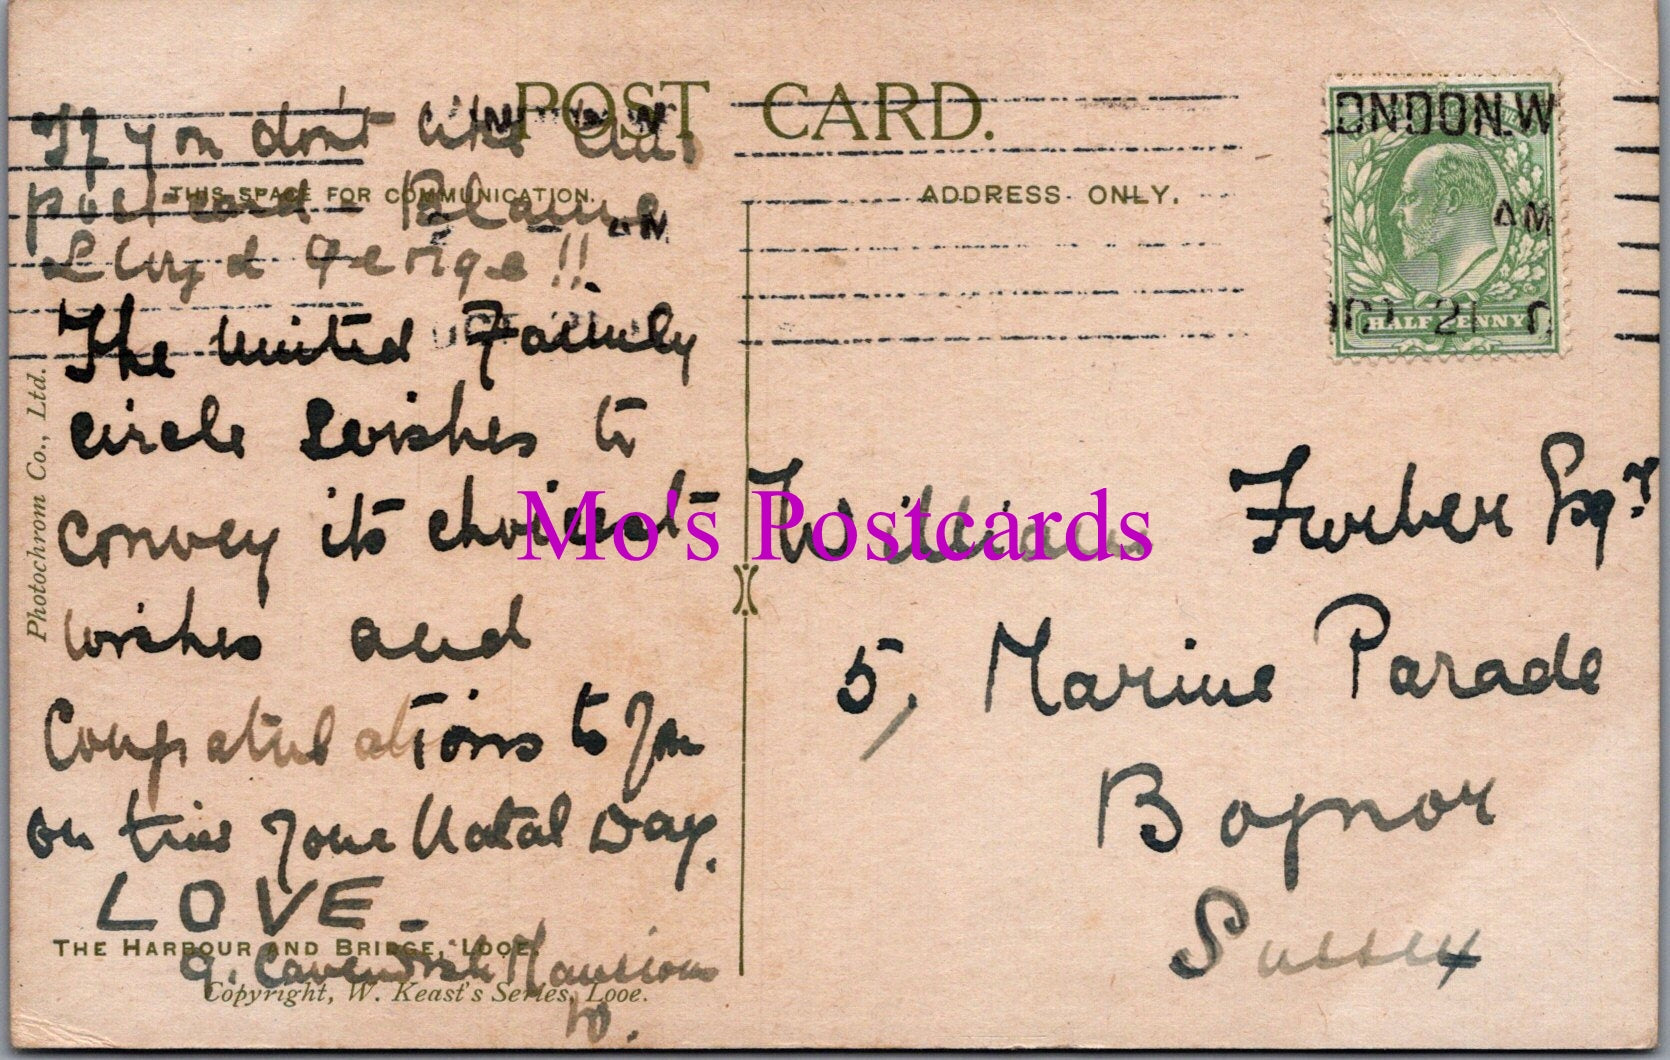 POST CARD.
THIS SPACE FOR COMMUNICATION.
ADDRESS ONLY.
If you don't like this
post card Blame
Lloyd George!!
The United Family
circle wishes to
convey its choicest
wishes and
Congratulations to you
on this your Natal Day.
LOVE_
THE HARBOUR AND BRIDGE, LOOE.
9. Cavendish Mansions
W.
Copyright, W. Keast's Series, Looe.
Photochrom Co., Ltd.
ONDON.W
AM
21
HALFPENNY
William Furber Esqr
5, Marine Parade
Bognor
Sussex
Mo's Postcards